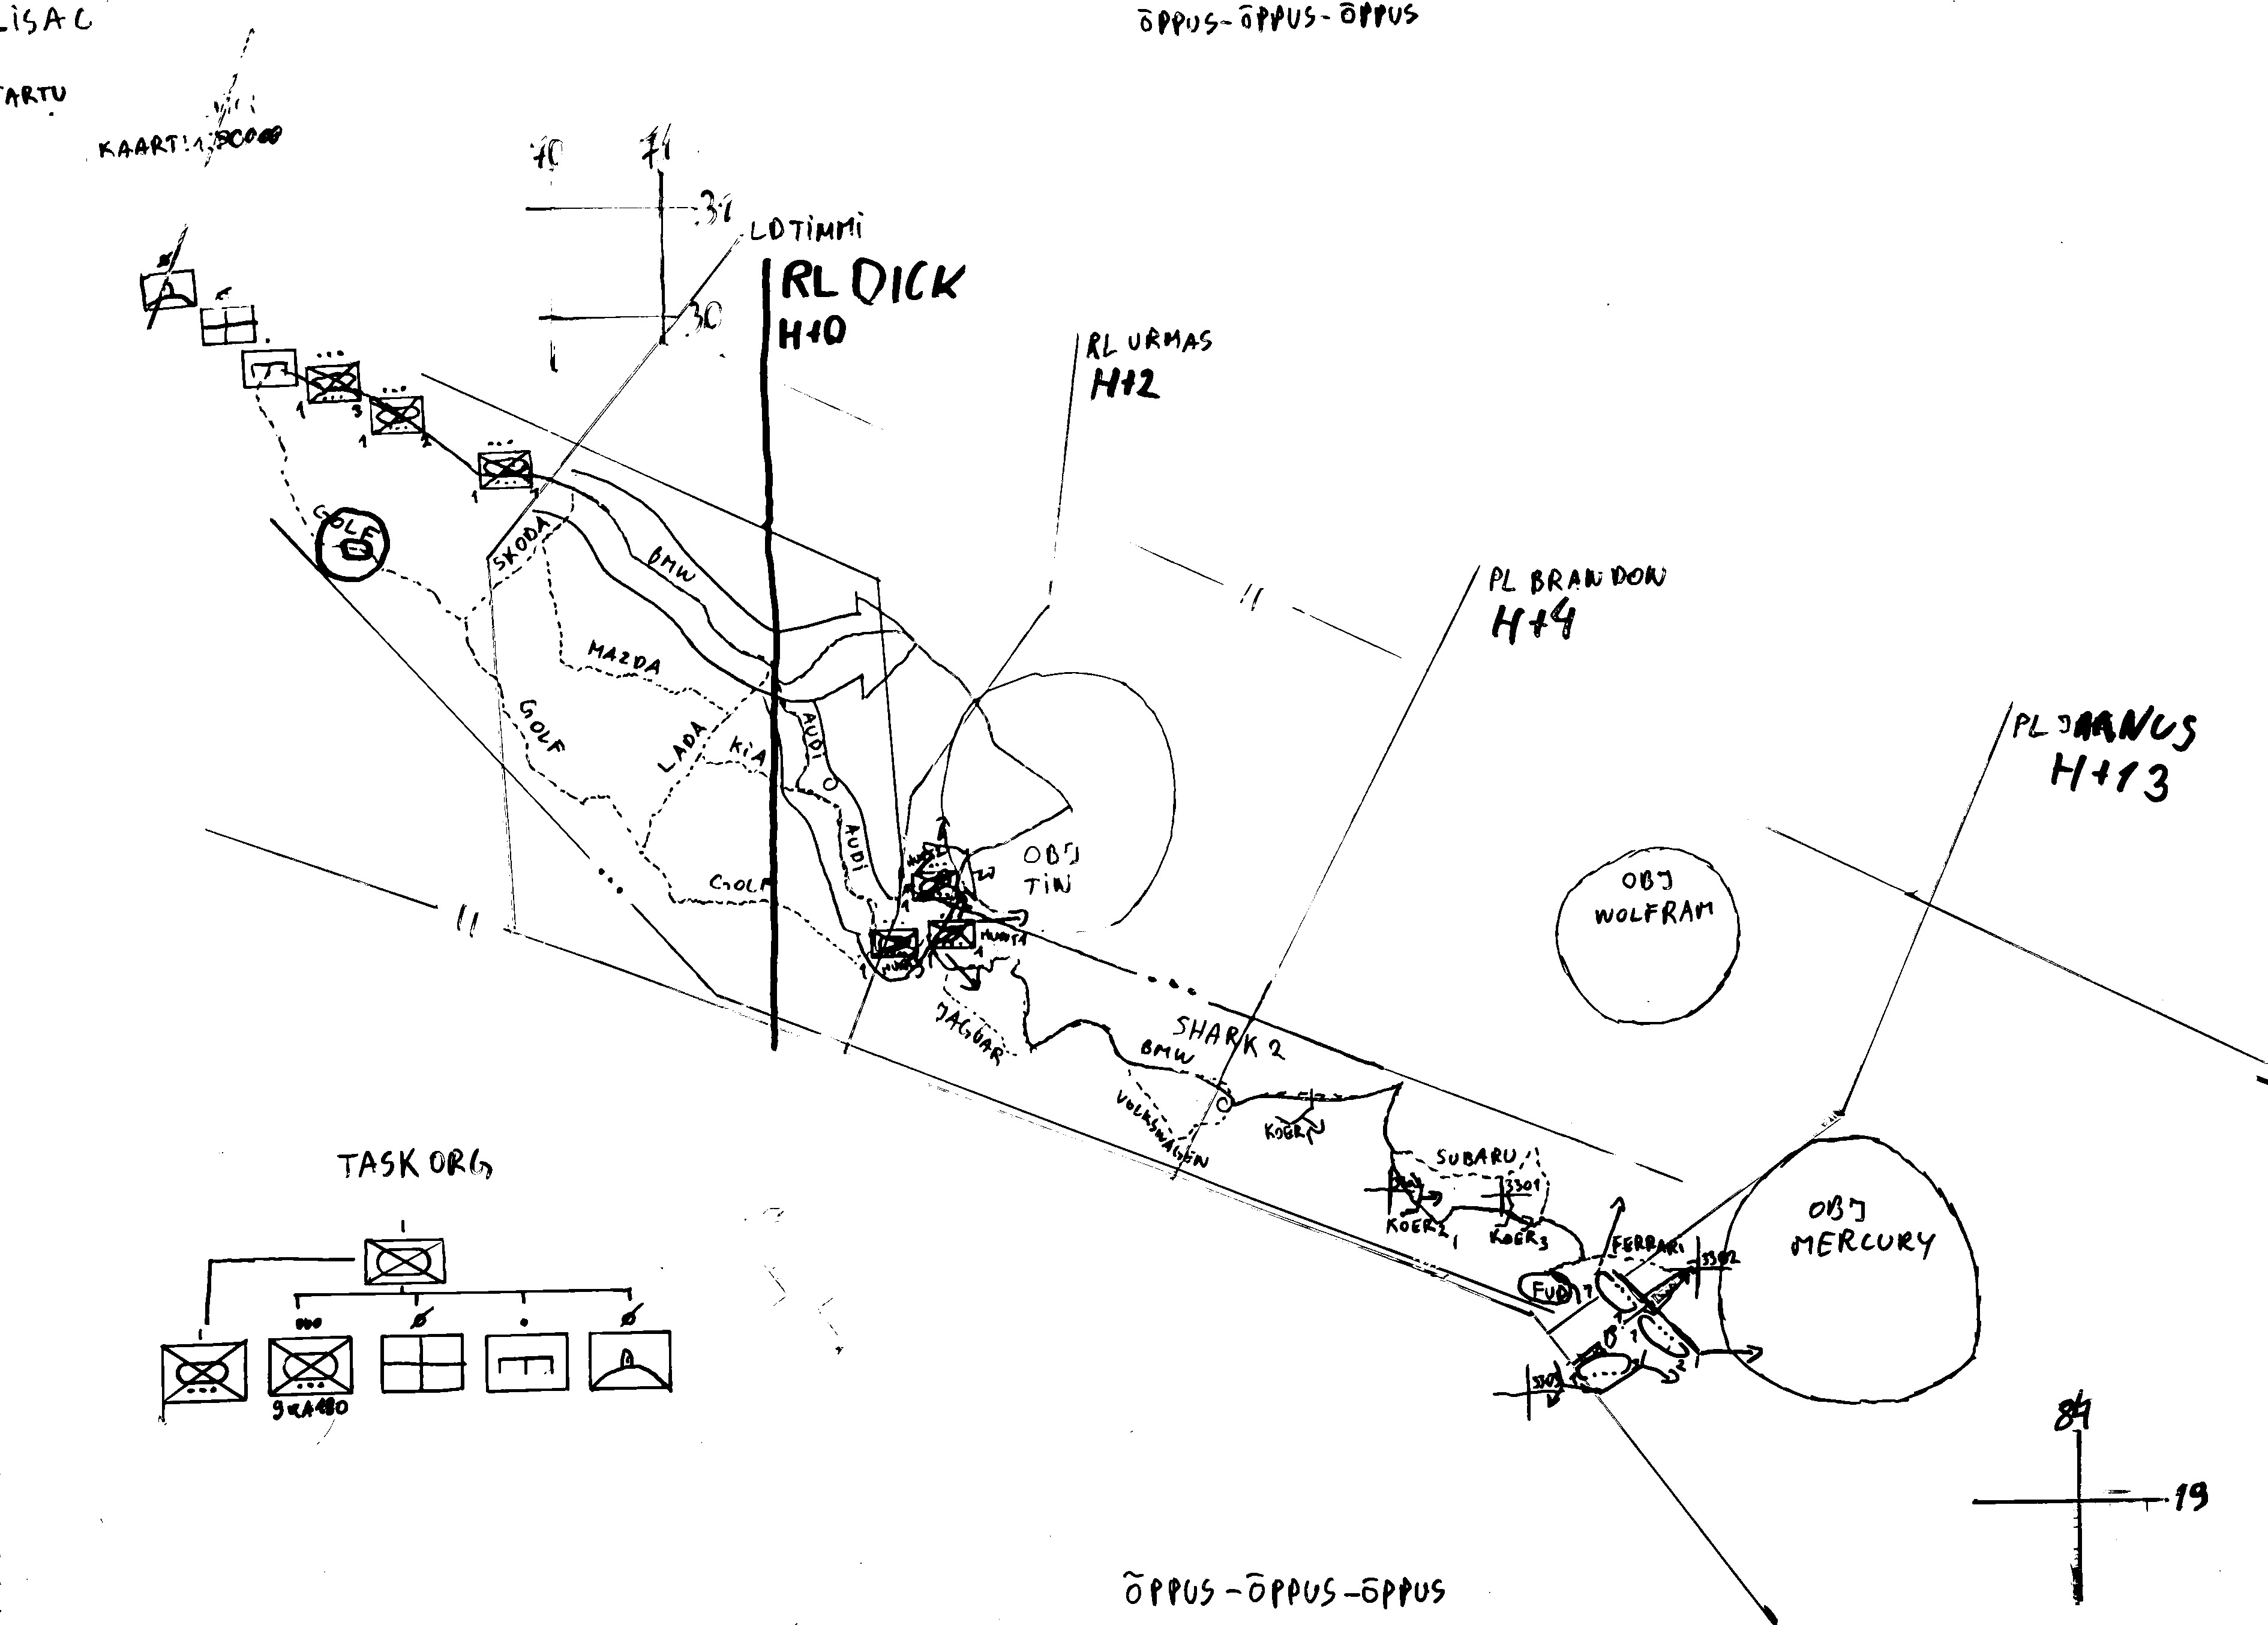 LISA C
ÕPPUS-ÕPPUS-ÕPPUS
TARTU
70
71
31
30
LD TIMMI
RL DICK
H+0
RL URMAS
H+2
PL BRANDON
H+4
PL JAANUS
H+13
GOLF
SKODA
BMW
MAZDA
GOLF
LADA
KIA
AUDI
AUDI
GOLF
OBJ
TIN
OBJ
WOLFRAM
JAGUAR
SHARK 2
BMW
VOLKSWAGEN
KOER1
SUBARU
3301
KOER2
KOER3
FERRARI
3302
FUP
OBJ
MERCURY
TASKORG
84
19
ÕPPUS-ÕPPUS-ÕPPUS